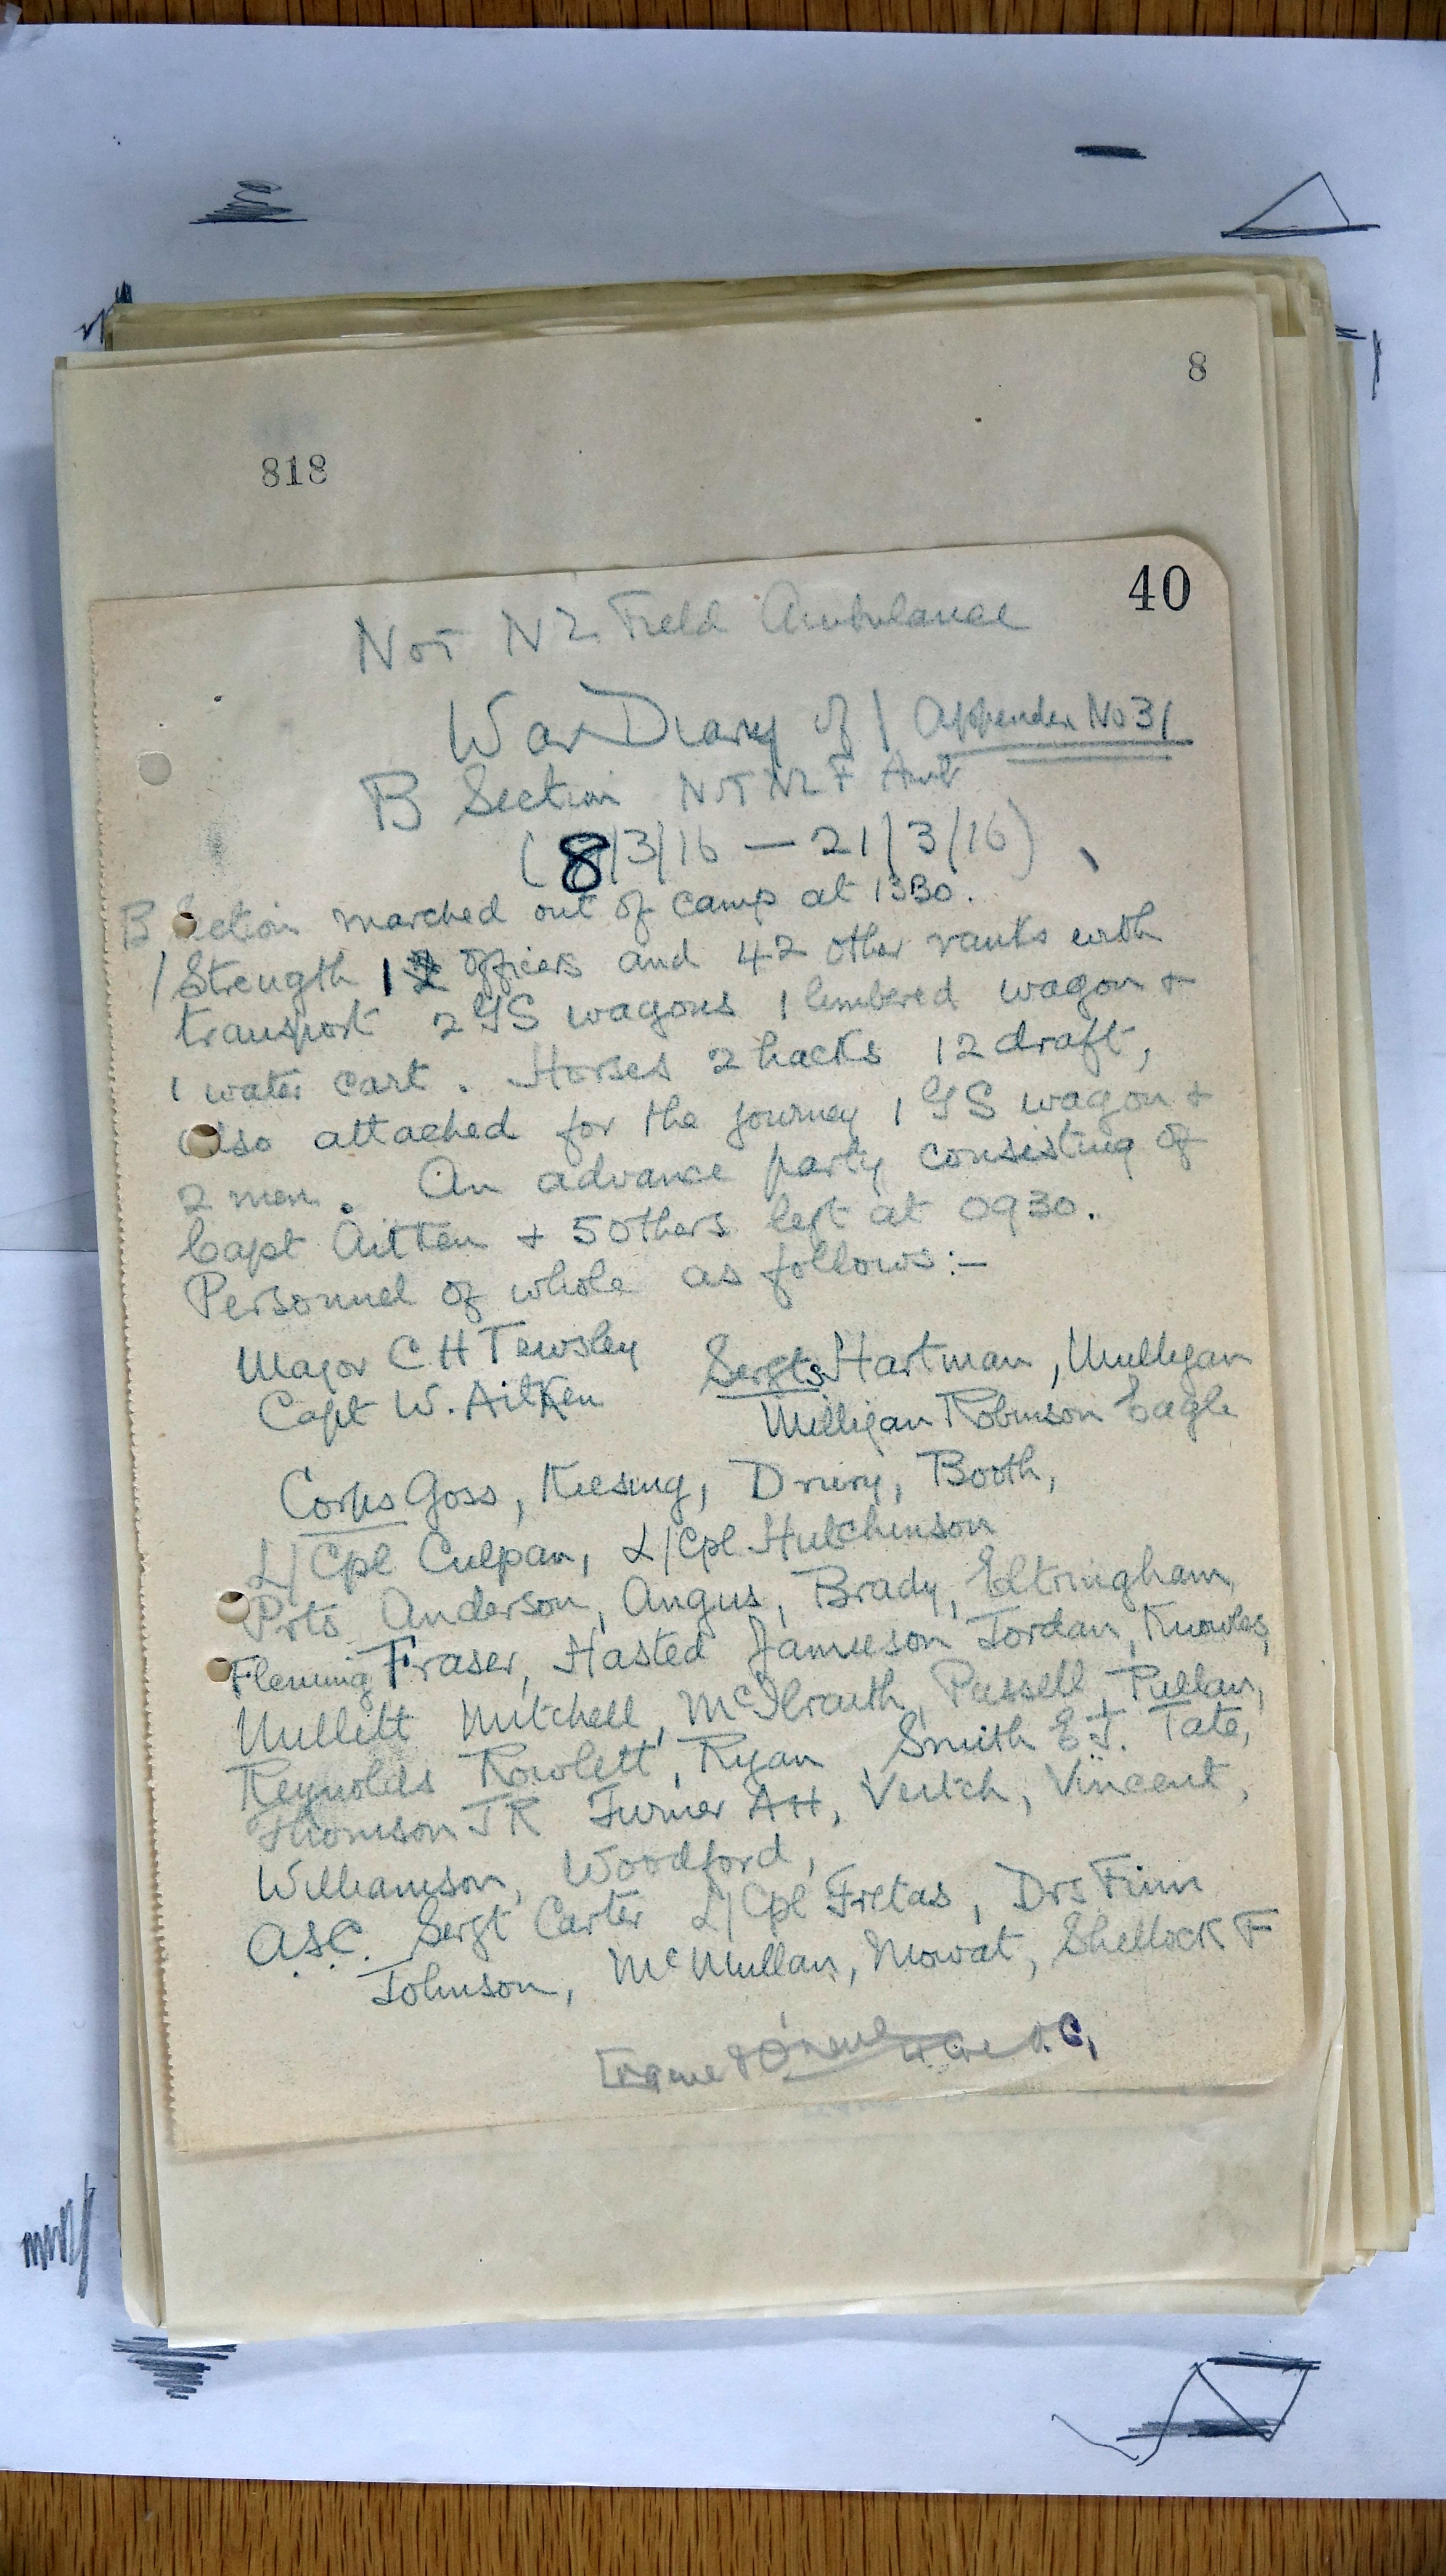 8
818
40
No 1 NZ Field Ambulance
War Diary of / Appendix No 31
B Section No 1 NZ F Amb
(8/3/16 — 21/3/16)
B Section marched out of camp at 1330.
/ Strength 1 officers and 42 other ranks with
transport 2 GS wagons 1 limbered wagon +
1 water cart. Horses 2 hacks 12 draft,
also attached for the journey 1 GS wagon +
2 men. An advance party consisting of
Capt Aitken + 5 others left at 0930.
Personnel of whole as follows:—
Major C H Tewsley Sergts Hartman, Mulligan
Capt W. Aitken Milligan Robinson Eagle
Corps Goss, Kiesing, Drury, Booth,
L/Cpl Culpan, L/Cpl Hutchinson
Prts Anderson, Angus, Brady, Eltringham,
Fleming Fraser, Hasted Jamieson Jordan, Knowles,
Mullett Mitchell, McIlraith, Passell, Pullan,
Reynolds Rowlett, Ryan, Smith E.J. Tate,
Thomson J R Turner A H, Veitch, Vincent,
Williamson, Woodford,
A.S.C. Sergt Carter L/Cpl Fretas, Drs Finn
Johnson, McMullan, Mowat, Shellock F